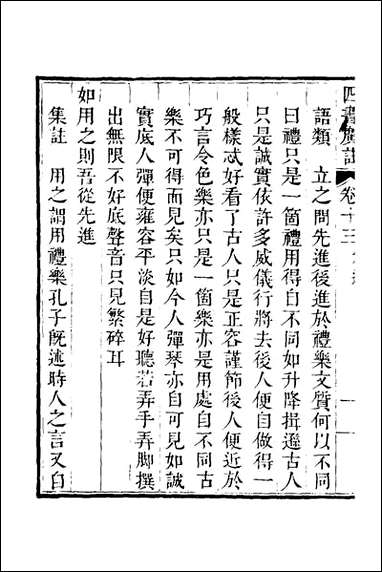 語類　立之問先進後進於禮樂文質何以不同
曰禮只是一箇禮用得自不同如升降揖遜古人
只是誠實依許多威儀行將去後人便自做得一
般樣忒好看了古人只是正容謹節後人便近於
巧言令色樂亦只是一箇樂亦是用處自不同古
樂不可得而見矣只如今人彈琴亦自可見如誠
實底人彈便雍容平淡自是好聽若弄手弄脚撰
出無限不好底聲音只見繁碎耳
如用之則吾從先進
集註　用之謂用禮樂孔子旣述時人之言又自